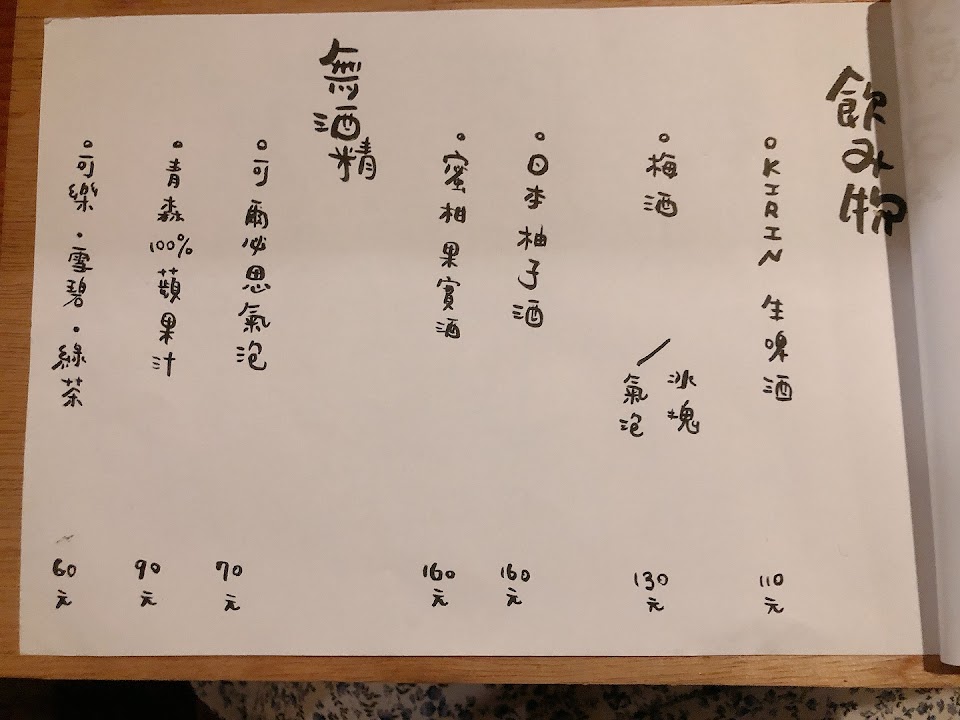 飲み物
。KIRIN 生啤酒 110元
。梅酒 冰塊／氣泡 130元
。日本柚子酒 160元
。蜜柑果實酒 160元
無酒精
。可爾必思氣泡 70元
。青森100%蘋果汁 90元
。可樂・雪碧・綠茶 60元